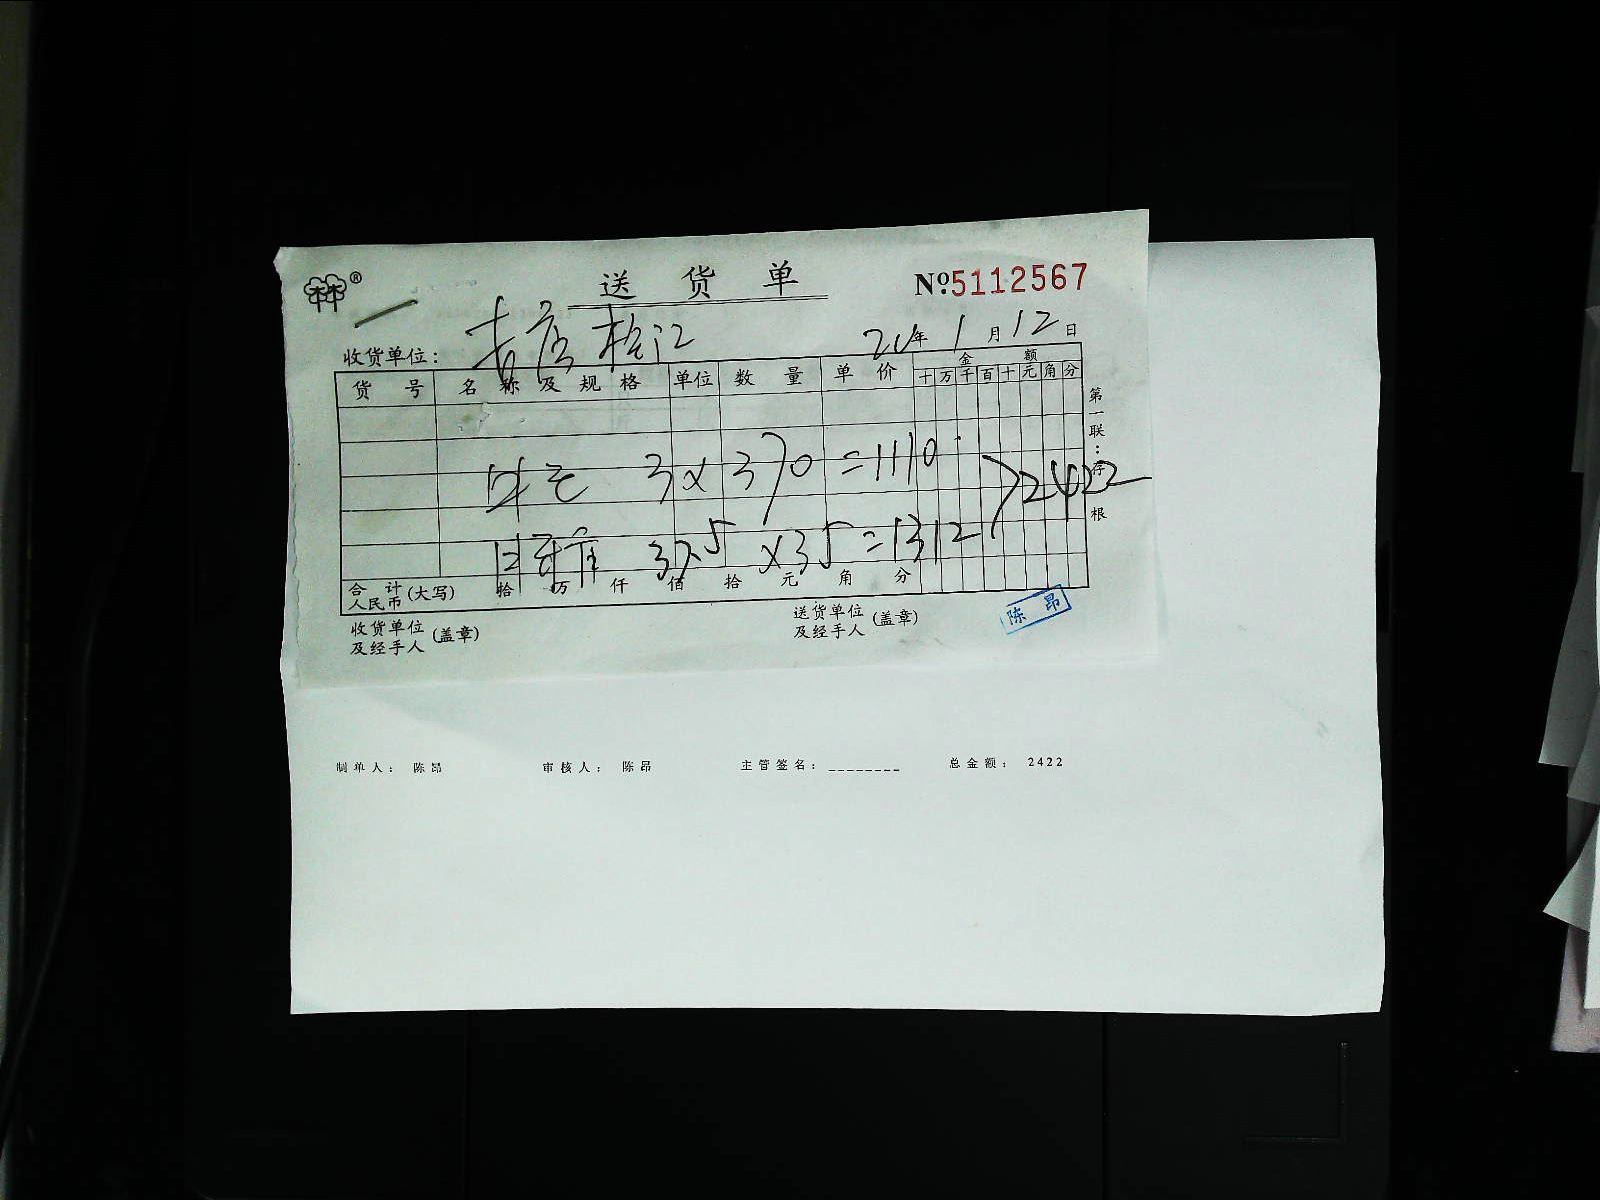 ®
送 货 单
№5112567
收货单位: 松江 年 1 月 12 日
货 号 名 称 及 规 格 单位 数 量 单 价 金 额
十 万 千 百 十 元 角 分
3 x 370 = 1110
2422
37.5 x 35 = 1312
合 计 人民币 (大写) 拾 万 仟 佰 拾 元 角 分
第一联:存根
收货单位 及经手人 (盖章) 送货单位 及经手人 (盖章) 陈 昂
制单人: 陈昂 审核人: 陈昂 主管签名: ________ 总金额: 2422